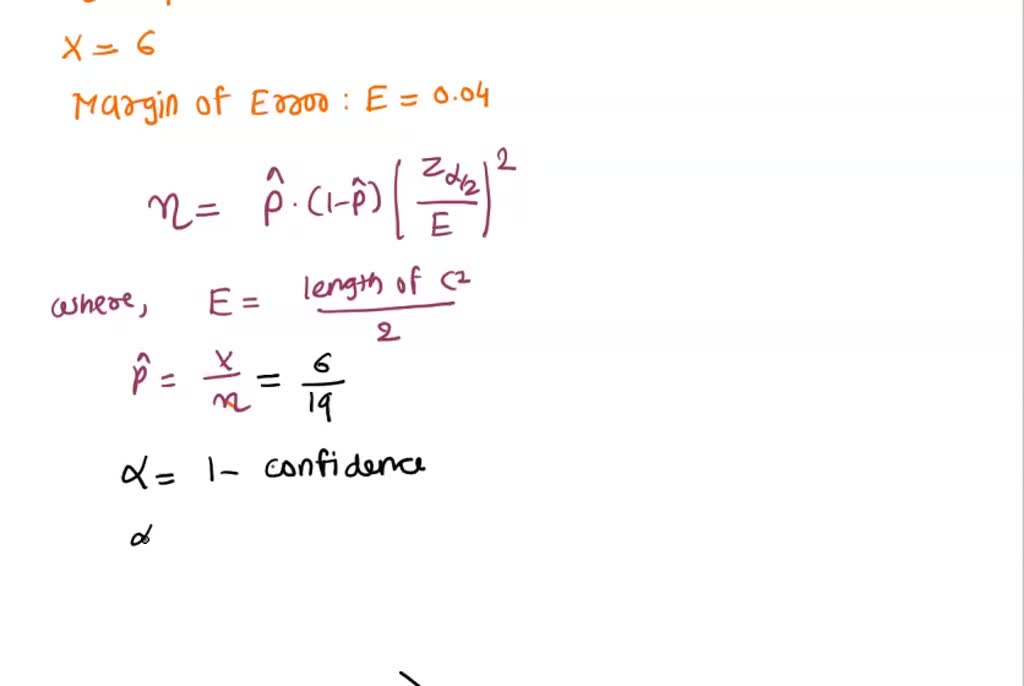 X = 6
Margin of Error : E = 0.04
n = p̂ · (1-p̂) (Zα/2 / E)²
where, E = length of CI / 2
p̂ = X / n = 6 / 19
α = 1 - confidence
α